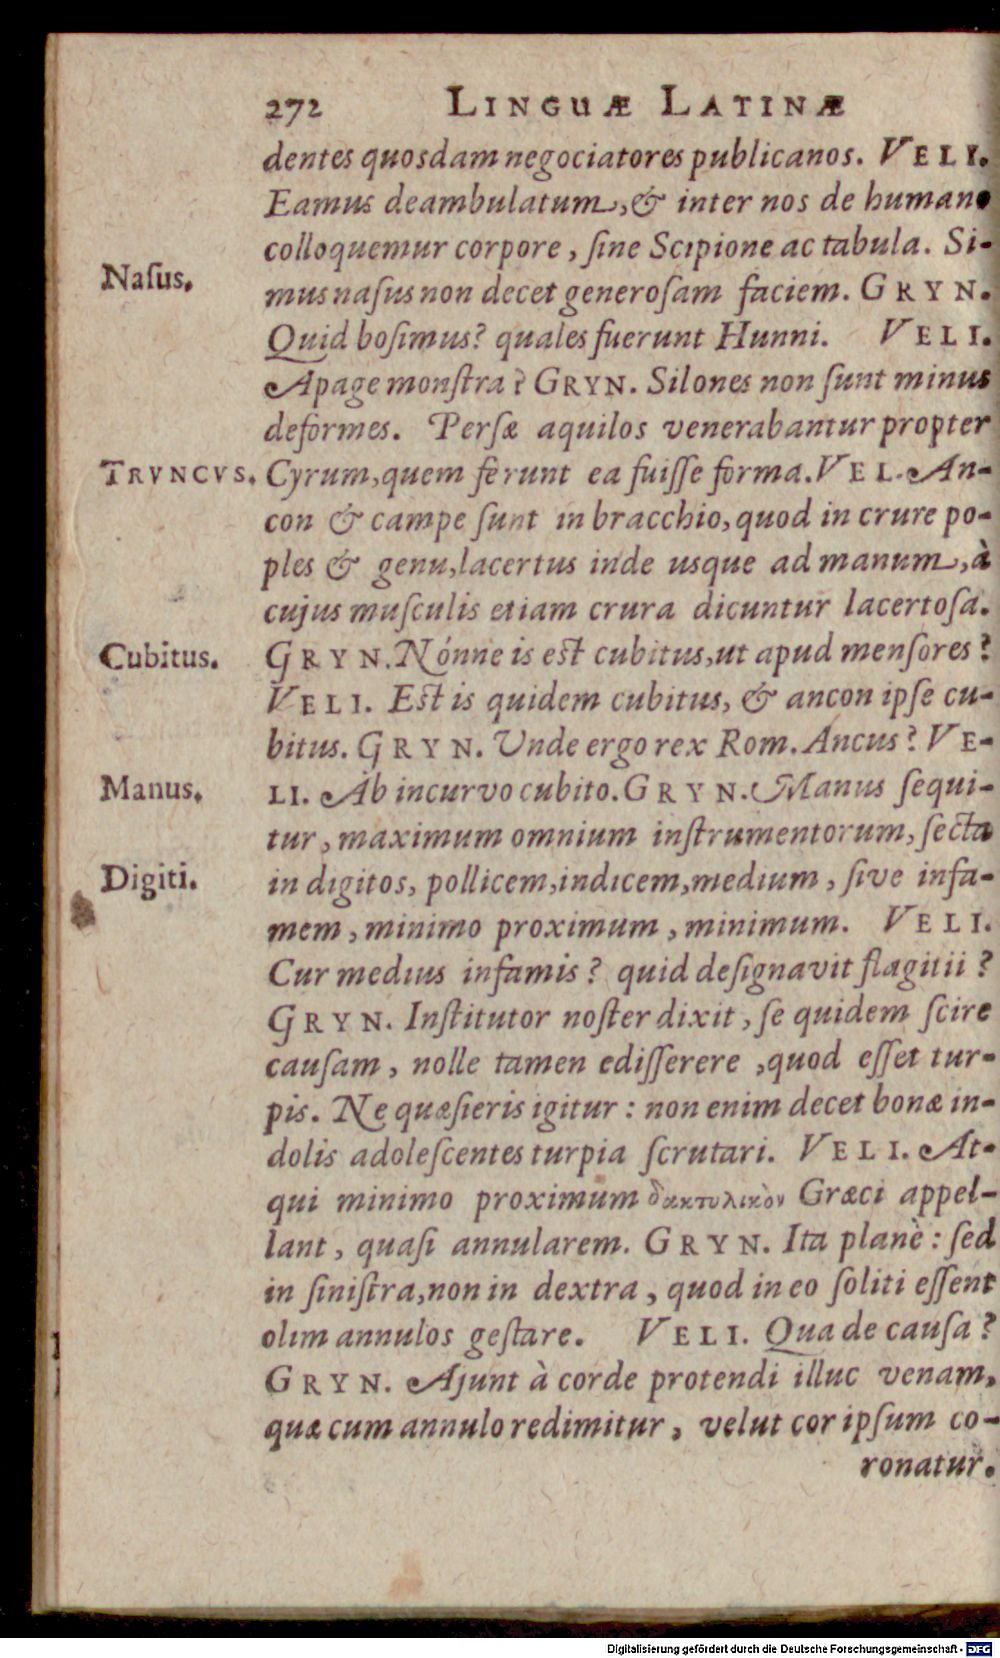 272 LINGUÆ LATINÆ
dentes quosdam negociatores publicanos. VELI.
Eamus deambulatum, & inter nos de humano
colloquemur corpore, ſine Scipione ac tabula. Si-
Naſus.
mus naſus non decet generoſam faciem. GRYN.
Quid boſimus? quales fuerunt Hunni. VELI.
Apage monſtra? GRYN. Silones non ſunt minus
deformes. Perſæ aquilos venerabantur propter
TRVNCVS.
Cyrum, quem ferunt ea fuiſſe forma. VEL. An-
con & campe ſunt in bracchio, quod in crure po-
ples & genu, lacertus inde usque ad manum, à
cujus muſculis etiam crura dicuntur lacertoſa.
Cubitus.
GRYN. Nónne is eſt cubitus, ut apud menſores?
VELI. Eſt is quidem cubitus, & ancon ipſe cu-
bitus. GRYN. Unde ergo rex Rom. Ancus? VE-
Manus.
LI. Ab incurvo cubito. GRYN. Manus ſequi-
tur, maximum omnium inſtrumentorum, ſecta
Digiti.
in digitos, pollicem, indicem, medium, ſive infa-
mem, minimo proximum, minimum. VELI.
Cur medius infamis? quid deſignavit flagitii?
GRYN. Inſtitutor noſter dixit, ſe quidem ſcire
cauſam, nolle tamen ediſſerere, quod eſſet tur-
pis. Ne quæſieris igitur: non enim decet bonæ in-
dolis adoleſcentes turpia ſcrutari. VELI. At-
qui minimo proximum δακτυλικὸν Græci appel-
lant, quaſi annularem. GRYN. Ita planè: ſed
in ſiniſtra, non in dextra, quod in eo ſoliti eſſent
olim annulos geſtare. VELI. Qua de cauſa?
GRYN. Ajunt à corde protendi illuc venam,
quæ cum annulo redimitur, velut cor ipſum co-
ronatur.
Digitalisierung gefördert durch die Deutsche Forschungsgemeinschaft - DFG